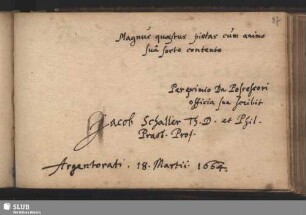 87
Magnus quæstus pietas cum animo
suâ sorte contento
Pereximio Dn Possessori
officia sua scribit
Jacob Schaller Th. D. et Phil.
Pract. Prof.
Argentorati. 18. Martii 1664.
SLUB